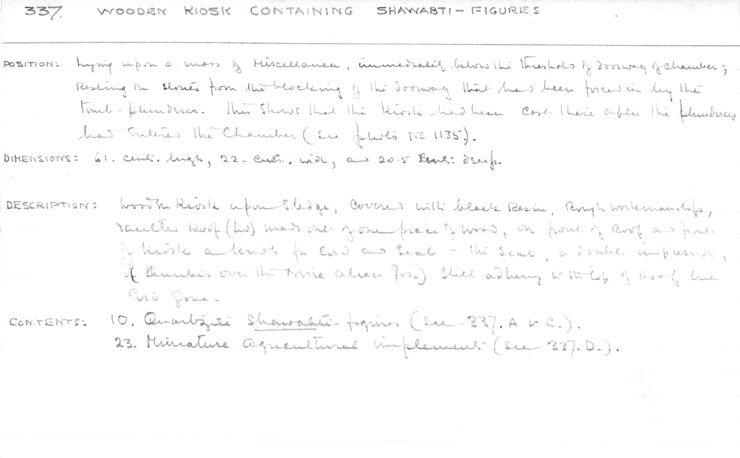 337. WOODEN KIOSK CONTAINING SHAWABTI-FIGURES
POSITION: Lying upon a mass of Miscellanea, immediately below the threshold of doorway of chamber;
Resting on stones from the blocking of the doorway that had been forced in by the
tomb-plunderers. This shows that the Kiosk had been cast there after the plunderers
had entered the Chamber (See photo No 1135).
DIMENSIONS: 61. centi. high, 22. centi. wide, and 20.5 centi: deep.
DESCRIPTION: Wooden Kiosk upon Sledge, Covered with black Resin, Rough workmanship,
Vaulted Roof (lid) made out of one piece of wood, on front of Roof and front
of Kiosk a knob for Cord and Seal - the Seal, a double impression,
of Anubis over the Nine alien foes) still adhering to the top of Roof, but
Cord gone.
CONTENTS: 10. Quartzite Shawabti-figures (See 337. A to C.).
23. Miniature Agricultural implements (See 337. D.).